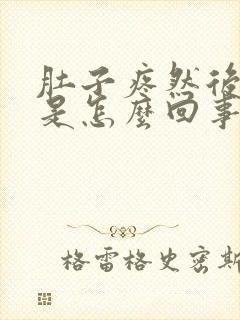 肚子疼然後
是怎麼回事
格雷格史密斯